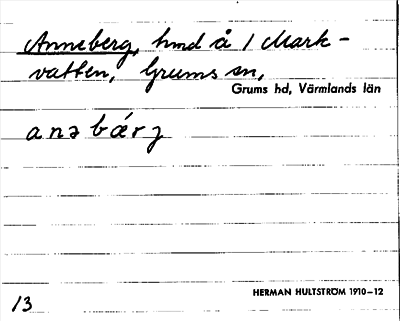 Anneberg, hmd å 1 Mark-
vatten, Grums sn,
Grums hd, Värmlands län
anəbǽrj
HERMAN HULTSTRÖM 1910–12
13